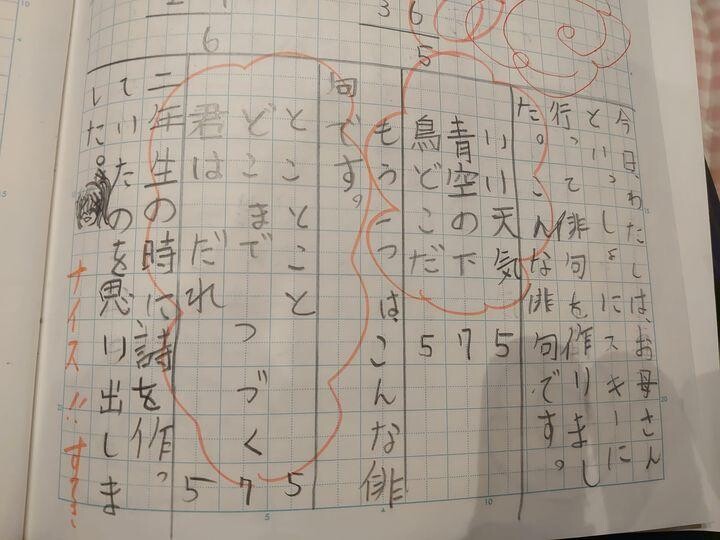 今日わたしは、お母さん
といっしょにスキーに
行って俳句を作りまし
た。こんな俳句です。
いい天気 5
青空の下 7
鳥どこだ 5
もう一つは、こんな俳
句です。
とことこと 5
どこまでつづく 7
君はだれ 5
二年生の時に詩を作っ
ていたのを思い出しま
した。
ナイス!!
3 6
5
6